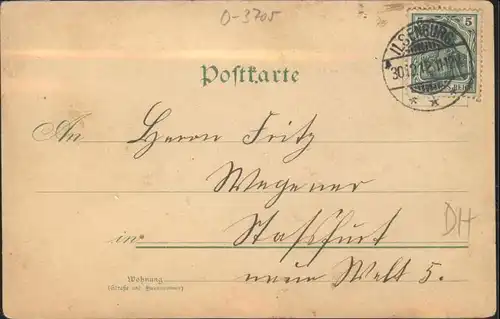 O-3705
5
ILSENBURG
Postkarte
An Herrn Fritz
Wegener
in Stassfurt
DH
neue Welt 5.
Wohnung
(Straße und Hausnummer)